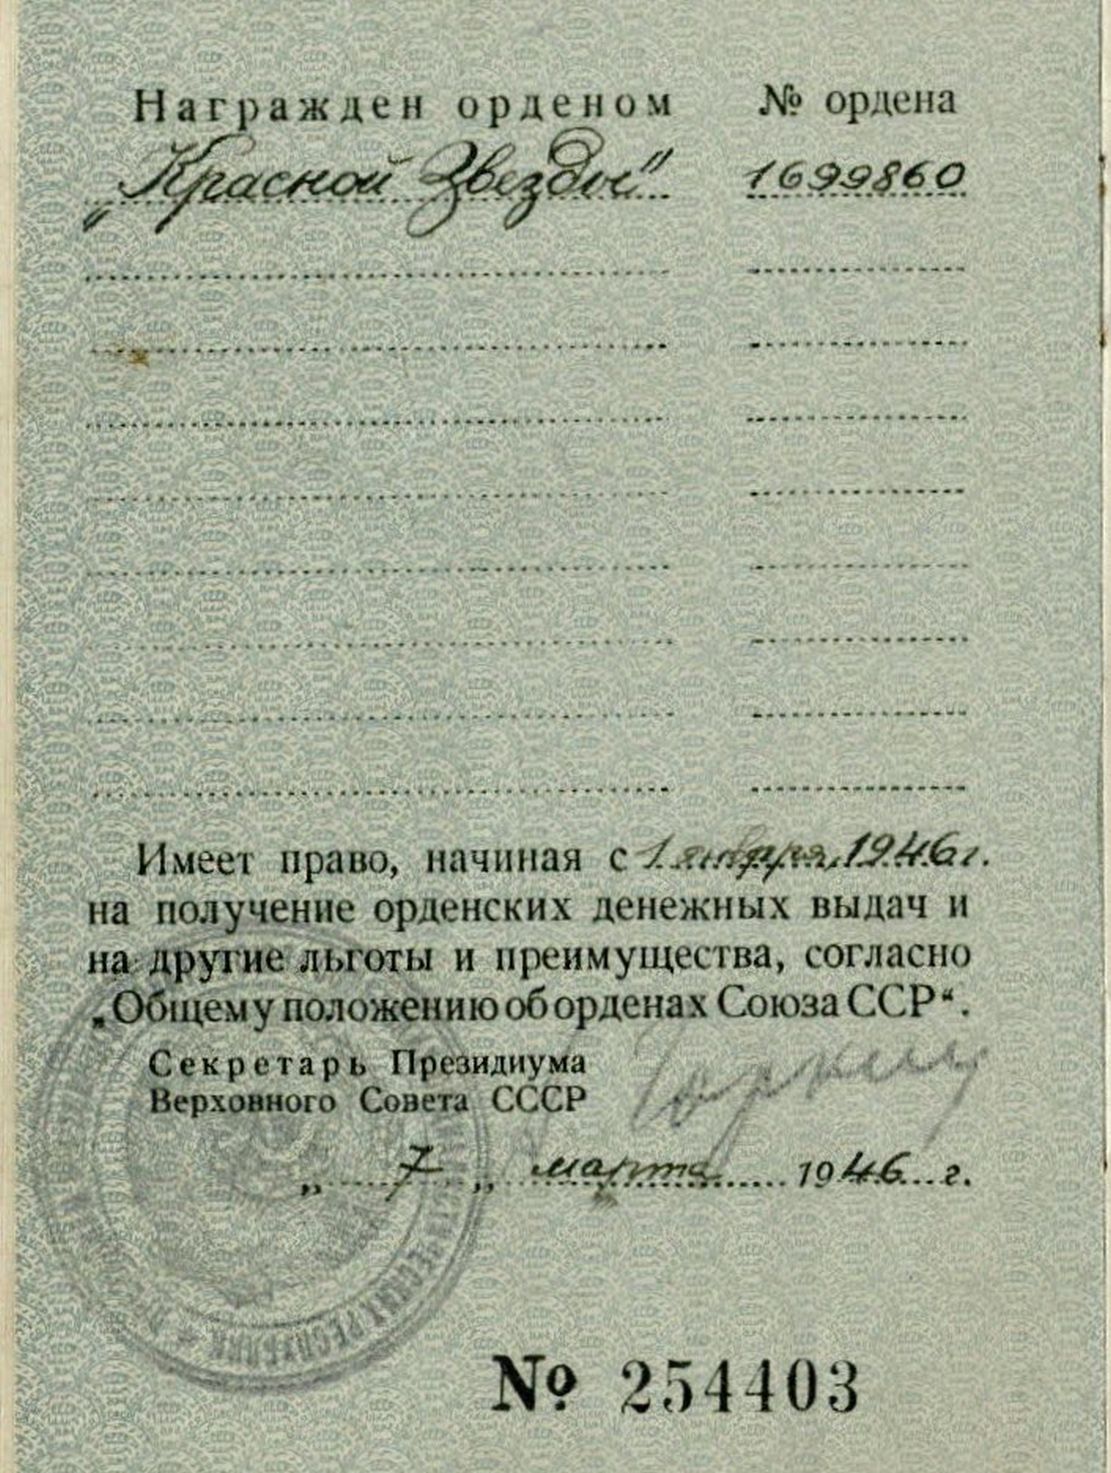 Награжден орденом № ордена
„Красной Звезды" 1699860
Имеет право, начиная с 1 января 1946 г.
на получение орденских денежных выдач и
на другие льготы и преимущества, согласно
„Общему положению об орденах Союза ССР“.
Секретарь Президиума
Верховного Совета СССР Горкин
„ 7 „ марта 1946 г.
РЕСПУБЛИК
№ 254403